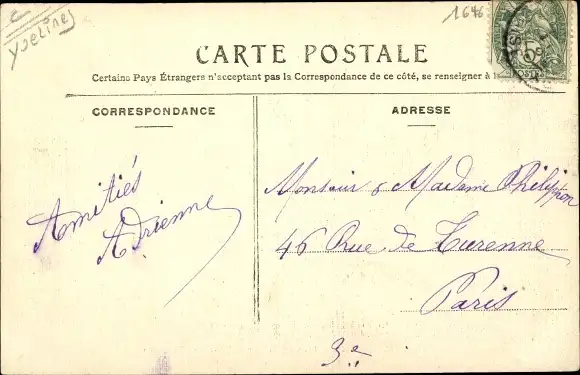 Yveline
1646
CARTE POSTALE
Certains Pays Étrangers n'acceptant pas la Correspondance de ce côté, se renseigner à
CORRESPONDANCE
ADRESSE
Amitiés
Adrienne
Monsieur & Madame Philippon
46 Rue de Turenne
Paris
3e